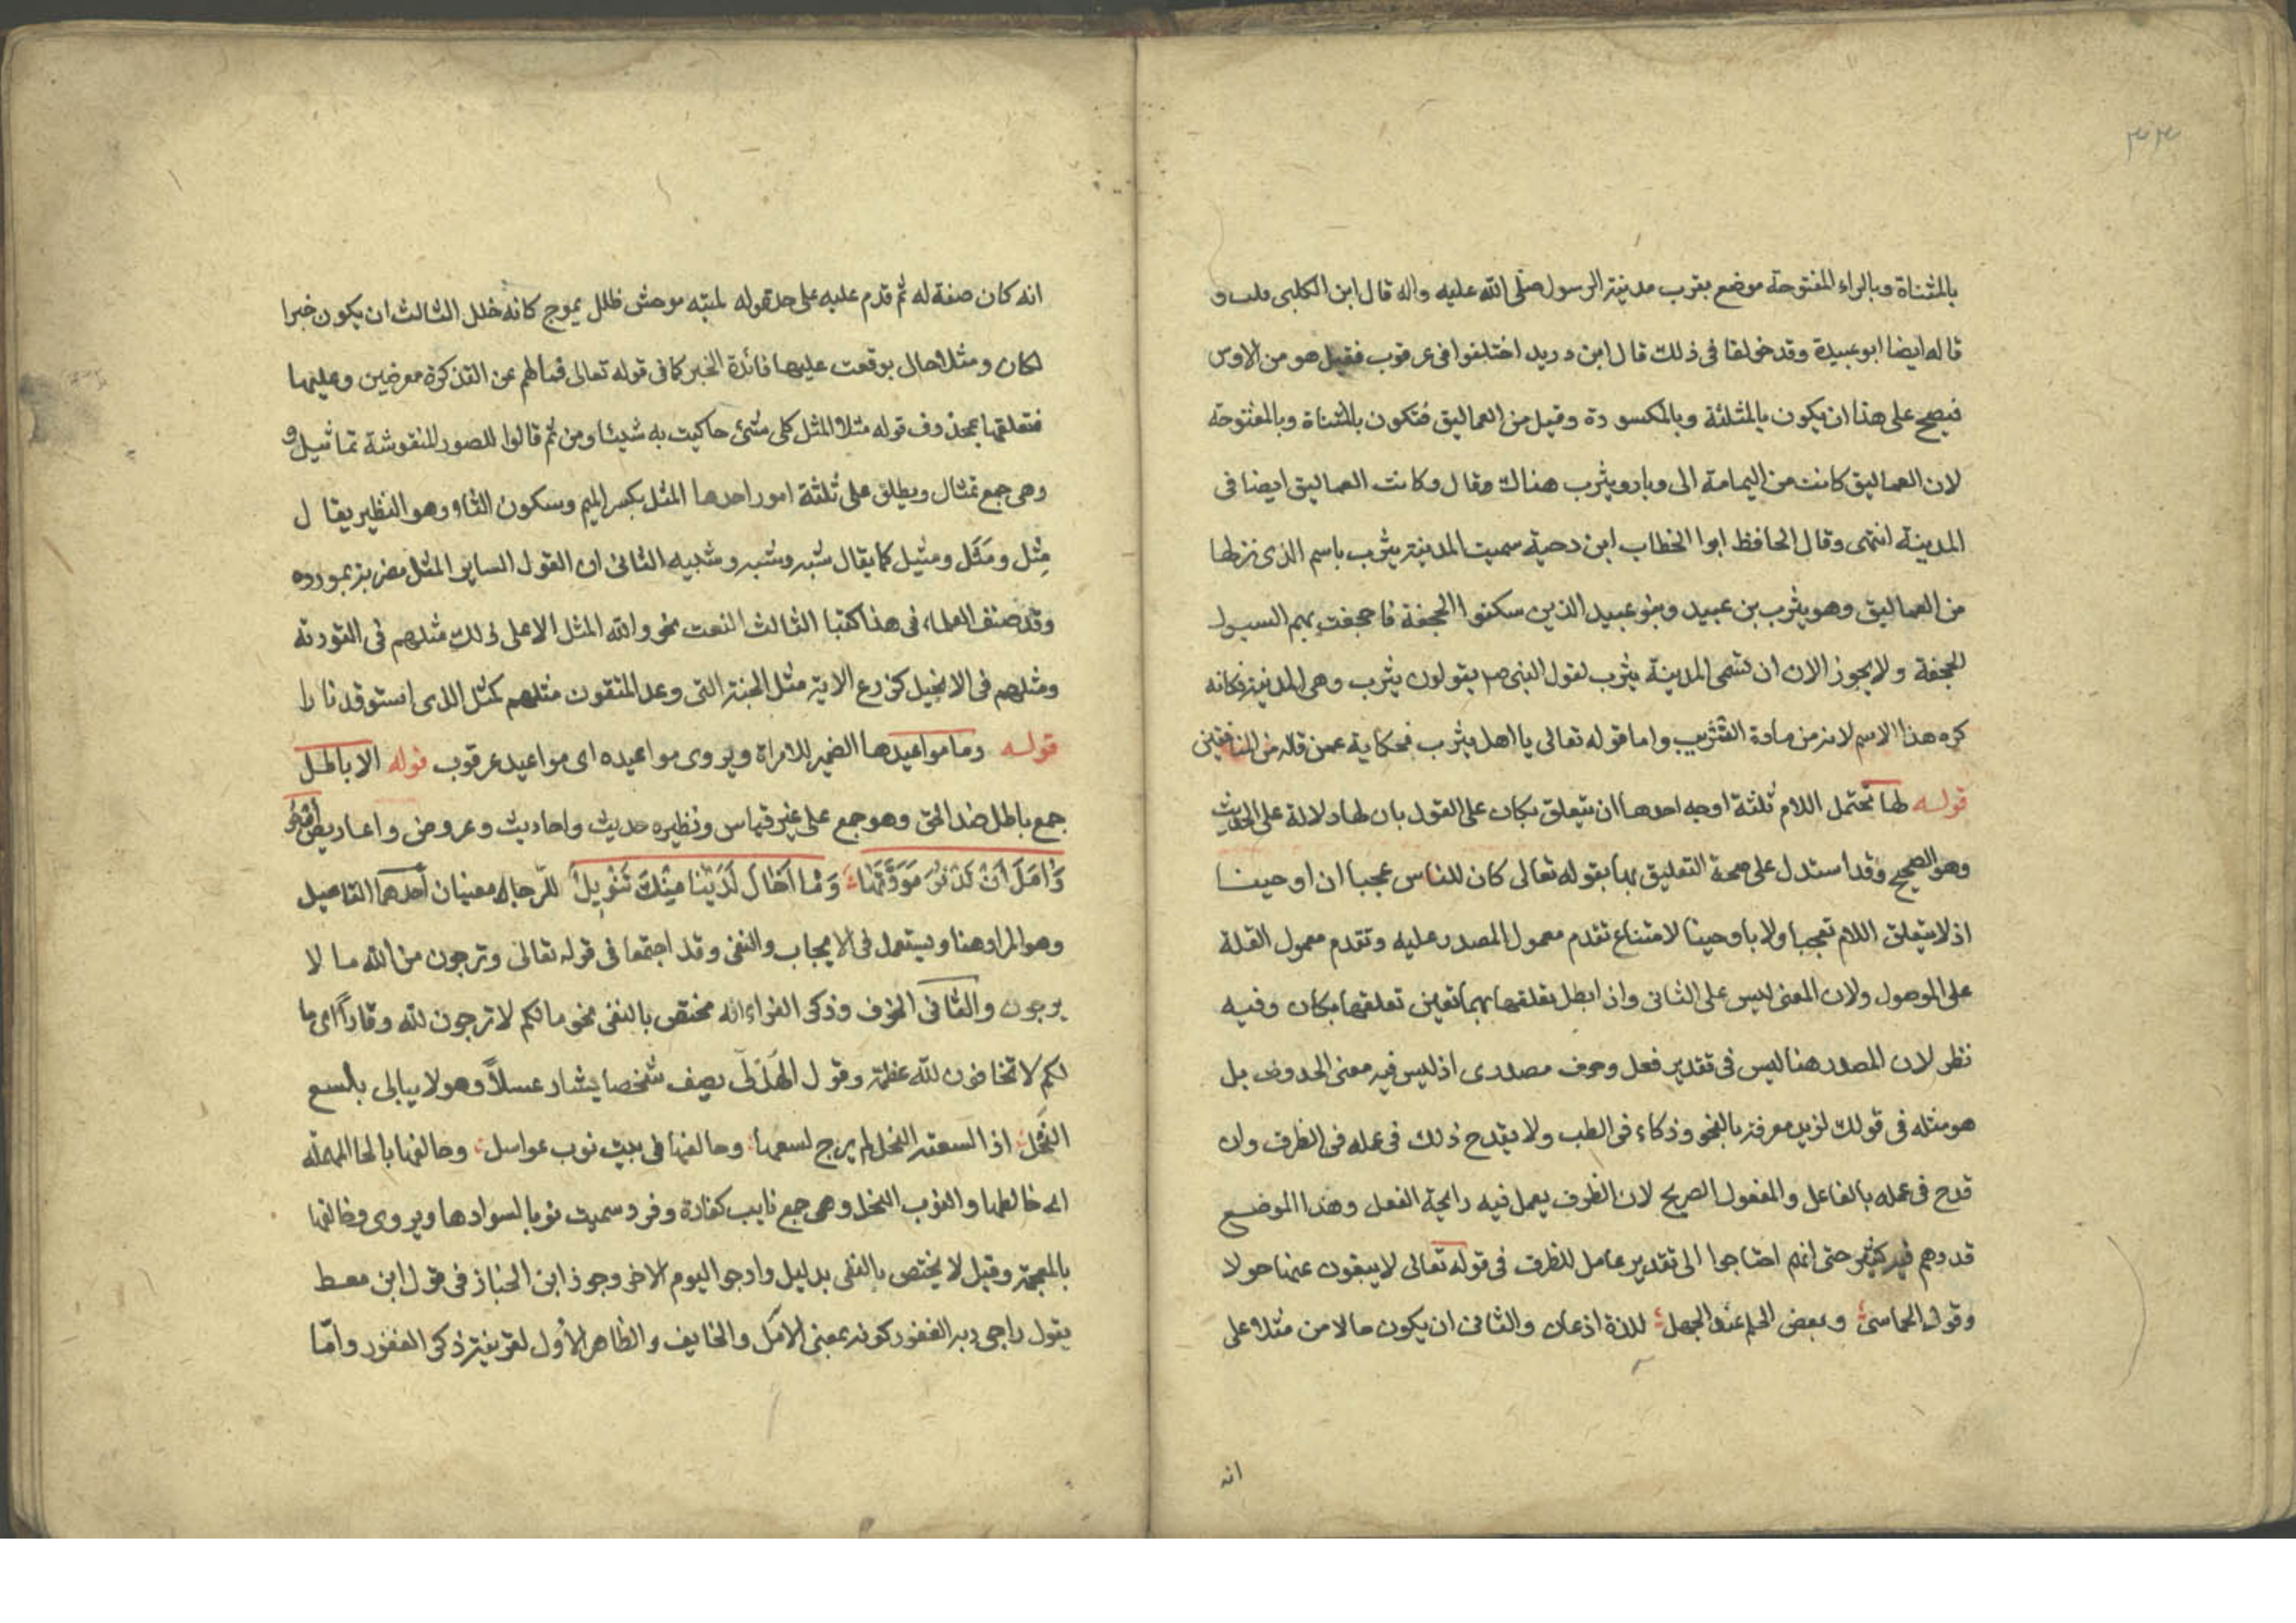 ٣٣
بالمثناة وبالراء المفتوحة موضع بقرب مدينة الرسول صلى الله عليه واله قال ابن الكلبى و
قاله ايضا ابو عبيدة وقد خولفا فى ذلك قال ابن دريد اختلفوا فى عرقوب فقيل هو من الاوس
فيصح على هذا ان يكون بالمثلثة وبالمكسورة وقيل من العماليق فتكون بالمثناة وبالمفتوحة
لان العماليق كانت من اليمامة الى وبار ويثرب هناك وقال وكانت العماليق ايضا فى
المدينة انتهى وقال الحافظ ابوا الخطاب ابن دحية سميت المدينة يثرب باسم الذى نزلها
من العماليق وهو يثرب بن عبيد وبنو عبيد الذين سكنوا الجحفة فاجحفت بهم السيول
الجحفة ولا يجوز الان ان تسمى المدينة يثرب لقول النبى ص يقولون يثرب وهى المدينة فكانه
كره هذا الاسم لانه من مادة التثريب واما قوله تعالى يا اهل يثرب فحكاية عمن قاله من المنافقين
قوله لها تحتمل اللام ثلثة اوجه احدها ان يتعلق بكان على القول بان لها دلالة على الحدث
وهو الصحيح وقد استدل على صحة التعليق بها بقوله تعالى كان للناس عجبا ان اوحينا
اذ لا يتعلق اللام تعجبا ولا باوحينا لامتناع تقدم معمول المصدر عليه وتقدم معمول الصلة
على الموصول ولان المعنى ليس على الثانى واذ ابطل تعلقها بهما تعين تعلقها بكان وفيه
نظر لان المصدر هنا ليس فى تقدير فعل وحرف مصدرى اذ ليس فيه معنى الحدوث بل
هو مثله فى قولك لزيد معرفة بالنحو وذكاء فى الطب ولا يقدح ذلك فى عمله فى الظرف وان
قدح فى عمله بالفاعل والمفعول الصريح لان الظرف يعمل فيه رايحة الفعل وهذا الموضع
قد وهم فيه كثير حتى انهم احتاجوا الى تقدير عامل للظرف فى قوله تعالى لا يبغون عنها حولا
وقول الحماسى وبعض الحلم عند الجهل للذلة اذعان والثانى ان يكون حالا من مثلا على
انه
انه كان صفة له ثم قدم عليه على حد قوله لميته موحش ظلل يموج كانه خلل الثالث ان يكون خبرا
لكان ومثلا حال بوقعت عليها فائدة الخبر كما فى قوله تعالى فما لهم عن التذكرة معرضين وعليهما
فتعلقها بمحذوف قوله مثلا المثل كل شئ حاكيت به شيئا ومن ثم قالوا للصور المنقوشة تماثيل و
وهى جمع تمثال ويطلق على ثلثة امور احدها المثل بكسر الميم وسكون الثاء وهو النظير يقال
مثل ومثل ومثيل كما يقال شبه وشبه وشبيه الثانى ان القول الساير الممثل مضربه بمورده
وقد صنف العلماء فى هذا كتبا الثالث النعت نحو والله المثل الاعلى ذلك مثلهم فى التورته
ومثلهم فى الانجيل كزرع الاية مثل الجنة التى وعد المتقون مثلهم كمثل الذى استوقد نارا
قوله وما مواعيدها الضمير للامراة ويروى مواعيده اى مواعيد عرقوب قوله الا باطيل
جمع باطل ضد الحق وهو جمع على غير قياس ونظيره حديث واحاديث وعروض واعاريض ارجو
وَاٰمَلُ اَنْ تَدْنُوَ مَوَدَّتُهَا وَمَا اَخَالُ لَدَيْنَا مِنْكِ تَنْوِيلُ للرجا له معنيان احدهما التاميل
وهو المراد هنا ويستعمل فى الايجاب والنفى وقد اجتمعا فى قوله تعالى وترجون من الله ما لا
يرجون والثانى الخوف وذكر الفراء انه مختص بالنفى نحو مالكم لا ترجون لله وقارا اى ما
لكم لا تخافون لله عظمة وقول الهذلى يصف شخصا يشار عسلا وهو لا يبالى بلسع
النحل اذا لسعته النحل لم يرج لسعها وحالفها فى بيت نوب عواسل وحالفها بالحا المهملة
اى خالطها والنوب النحل وهى جمع نايب كفارة وفره سميت نوبا لسوادها ويروى وخالفها
بالمعجمة وقيل لا يختص بالنفى بدليل وارجو اليوم الاخر وجوز ابن الخباز فى قول ابن معط
يقول راجى ربه الغفور كونه بمعنى الآمل والخايف والظاهر الاول لقرينة ذكر الغفور وامّا